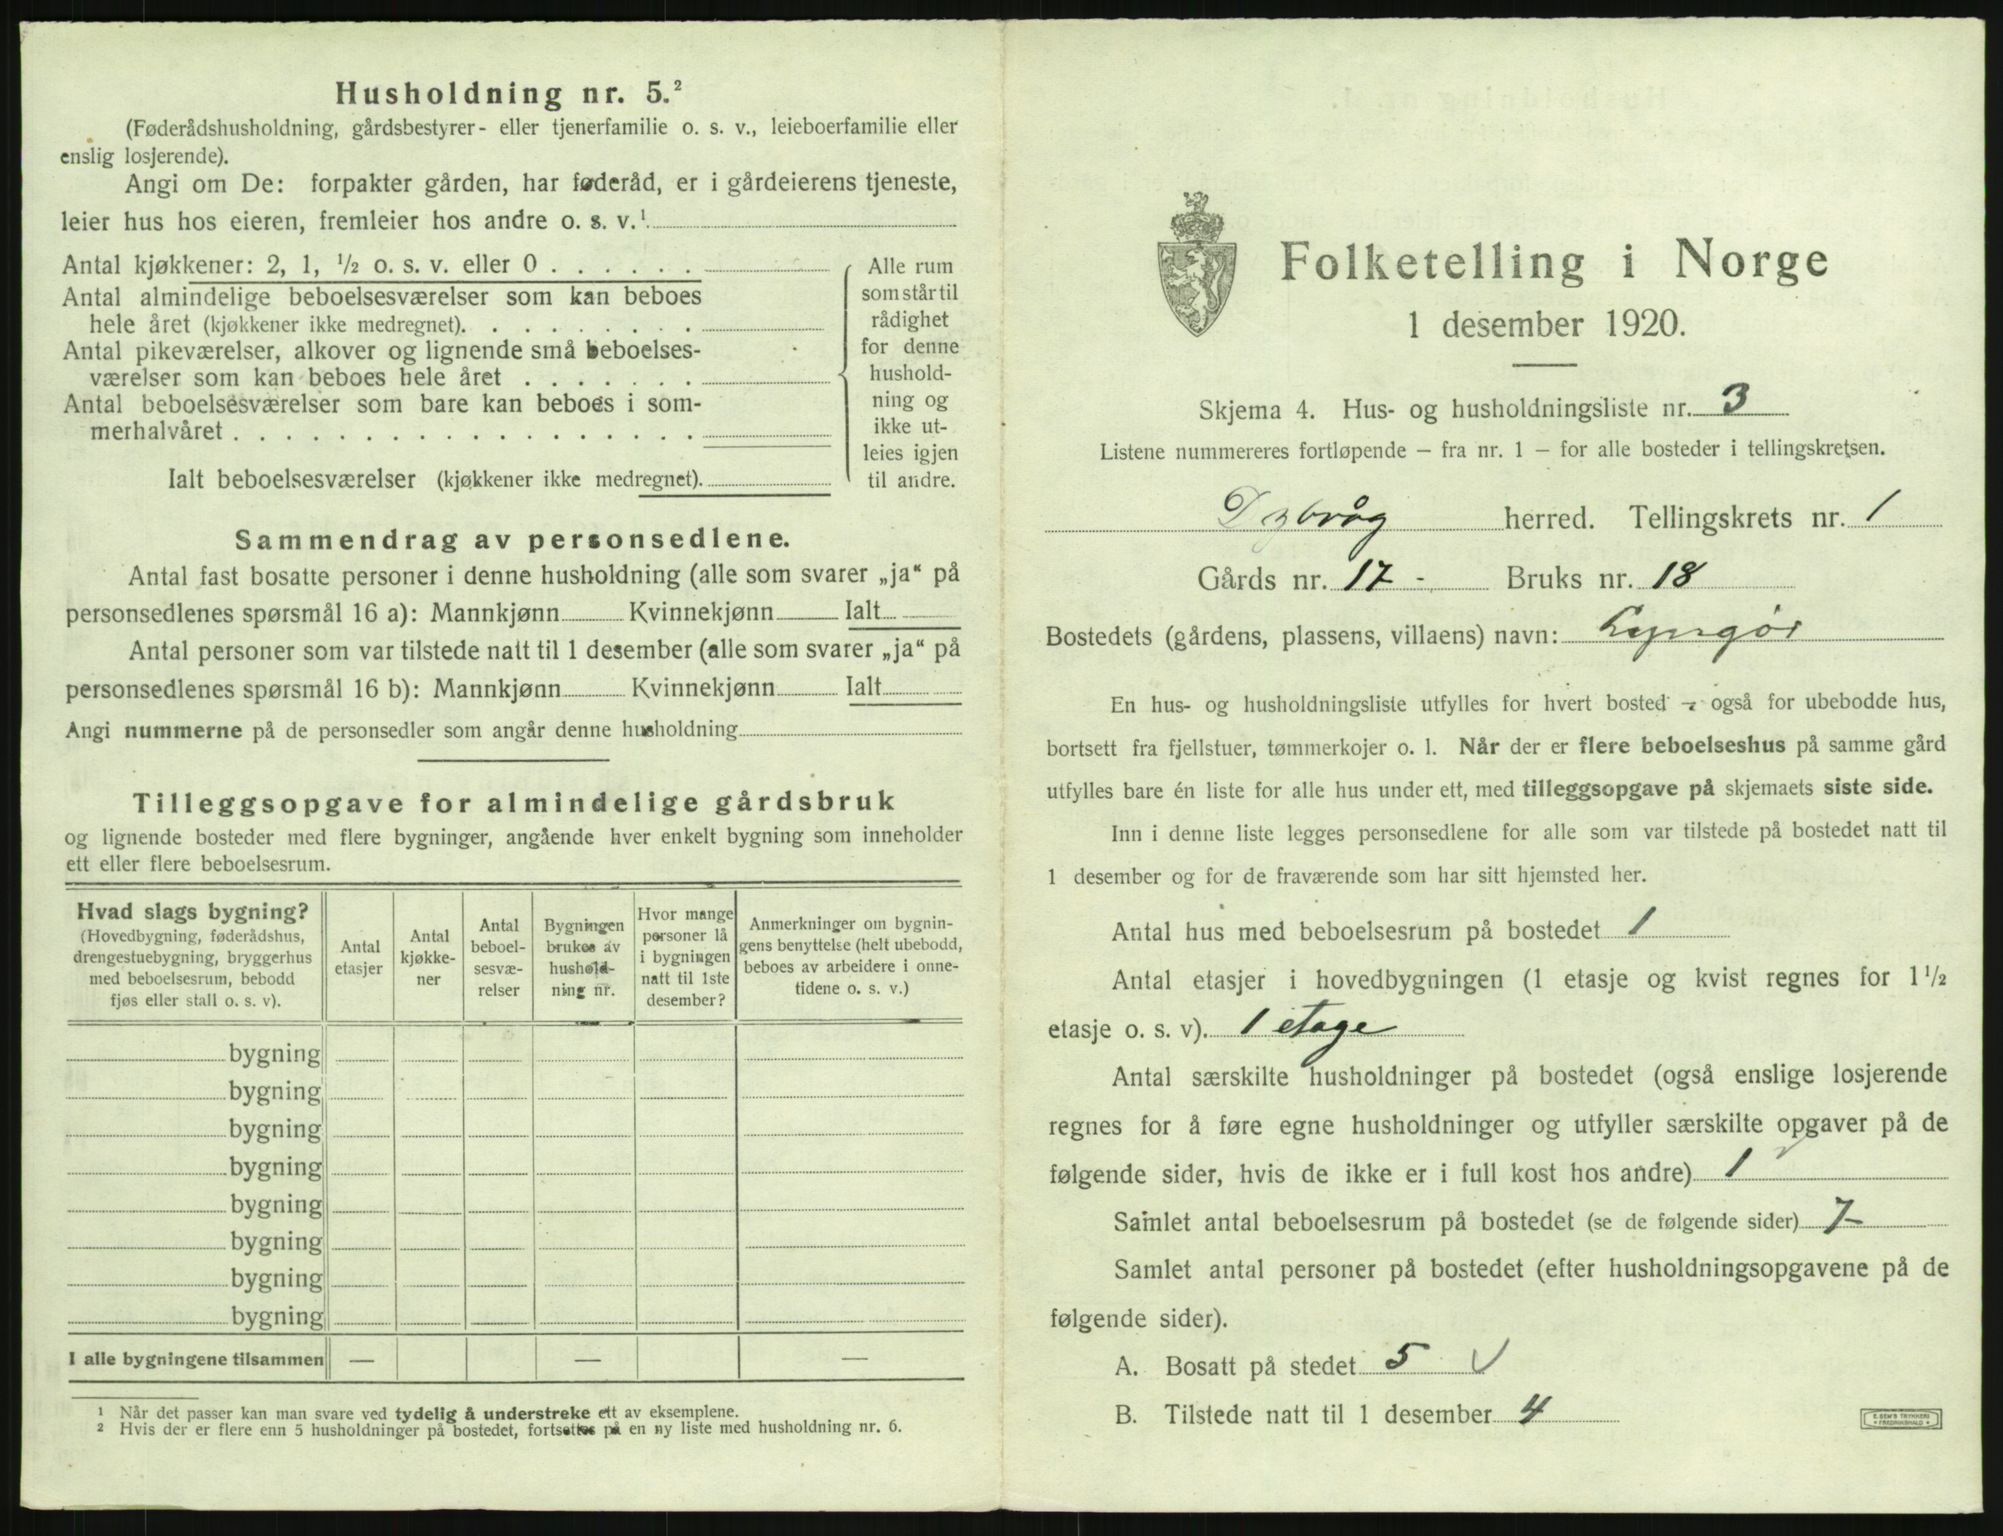 Husholdning nr. 5.²
(Føderådshusholdning, gårdsbestyrer- eller tjenerfamilie o. s. v., leieboerfamilie eller
enslig losjerende).
Angi om De: forpakter gården, har føderåd, er i gårdeierens tjeneste,
leier hus hos eieren, fremleier hos andre o. s. v.¹
Antal kjøkkener: 2, 1, ½ o. s. v. eller 0 . . . . . .
Antal almindelige beboelsesværelser som kan beboes
hele året (kjøkkener ikke medregnet). . . . . . . . .
Antal pikeværelser, alkover og lignende små beboelses-
værelser som kan beboes hele året . . . . . . .
Antal beboelsesværelser som bare kan beboes i som-
merhalvåret . . . . . . . . . . . . . . . . . .
Ialt beboelsesværelser (kjøkkener ikke medregnet).
Alle rum
som står til
rådighet
for denne
hushold-
ning og
ikke ut-
leies igjen
til andre.
Sammendrag av personsedlene.
Antal fast bosatte personer i denne husholdning (alle som svarer „ja“ på
personsedlenes spørsmål 16 a): Mannkjønn Kvinnekjønn Ialt
Antal personer som var tilstede natt til 1 desember (alle som svarer „ja“ på
personsedlenes spørsmål 16 b): Mannkjønn Kvinnekjønn Ialt
Angi nummerne på de personsedler som angår denne husholdning
Tilleggsopgave for almindelige gårdsbruk
og lignende bosteder med flere bygninger, angående hver enkelt bygning som inneholder
ett eller flere beboelsesrum.
Hvad slags bygning?
(Hovedbygning, føderådshus,
drengestuebygning, bryggerhus
med beboelsesrum, bebodd
fjøs eller stall o. s. v).
Antal
etasjer
Antal
kjøkke-
ner
Antal
beboel-
sesvæ-
relser
Bygningen
brukes av
hushold-
ning nr.
Hvor mange
personer lå
i bygningen
natt til 1ste
desember?
Anmerkninger om bygnin-
gens benyttelse (helt ubebodd,
beboes av arbeidere i onne-
tidene o. s. v.)
bygning
bygning
bygning
bygning
bygning
bygning
bygning
bygning
I alle bygningene tilsammen — — —
¹ Når det passer kan man svare ved tydelig å understreke ett av eksemplene.
² Hvis der er flere enn 5 husholdninger på bostedet, fortsettes på en ny liste med husholdning nr. 6.
Folketelling i Norge
1 desember 1920.
Skjema 4. Hus- og husholdningsliste nr. 3
Listene nummereres fortløpende – fra nr. 1 – for alle bosteder i tellingskretsen.
Dybvåg herred. Tellingskrets nr. 1
Gårds nr. 17 - Bruks nr. 18
Bostedets (gårdens, plassens, villaens) navn: Lyngør
En hus- og husholdningsliste utfylles for hvert bosted – også for ubebodde hus,
bortsett fra fjellstuer, tømmerkojer o. l. Når der er flere beboelseshus på samme gård
utfylles bare én liste for alle hus under ett, med tilleggsopgave på skjemaets siste side.
Inn i denne liste legges personsedlene for alle som var tilstede på bostedet natt til
1 desember og for de fraværende som har sitt hjemsted her.
Antal hus med beboelsesrum på bostedet 1
Antal etasjer i hovedbygningen (1 etasje og kvist regnes for 1½
etasje o. s. v). 1 etage
Antal særskilte husholdninger på bostedet (også enslige losjerende
regnes for å føre egne husholdninger og utfyller særskilte opgaver på de
følgende sider, hvis de ikke er i full kost hos andre) 1
Samlet antal beboelsesrum på bostedet (se de følgende sider) 7
Samlet antal personer på bostedet (efter husholdningsopgavene på de
følgende sider).
A. Bosatt på stedet 5 √
B. Tilstede natt til 1 desember 4
E. SEM'S TRYKKERI
FREDRIKSHALD